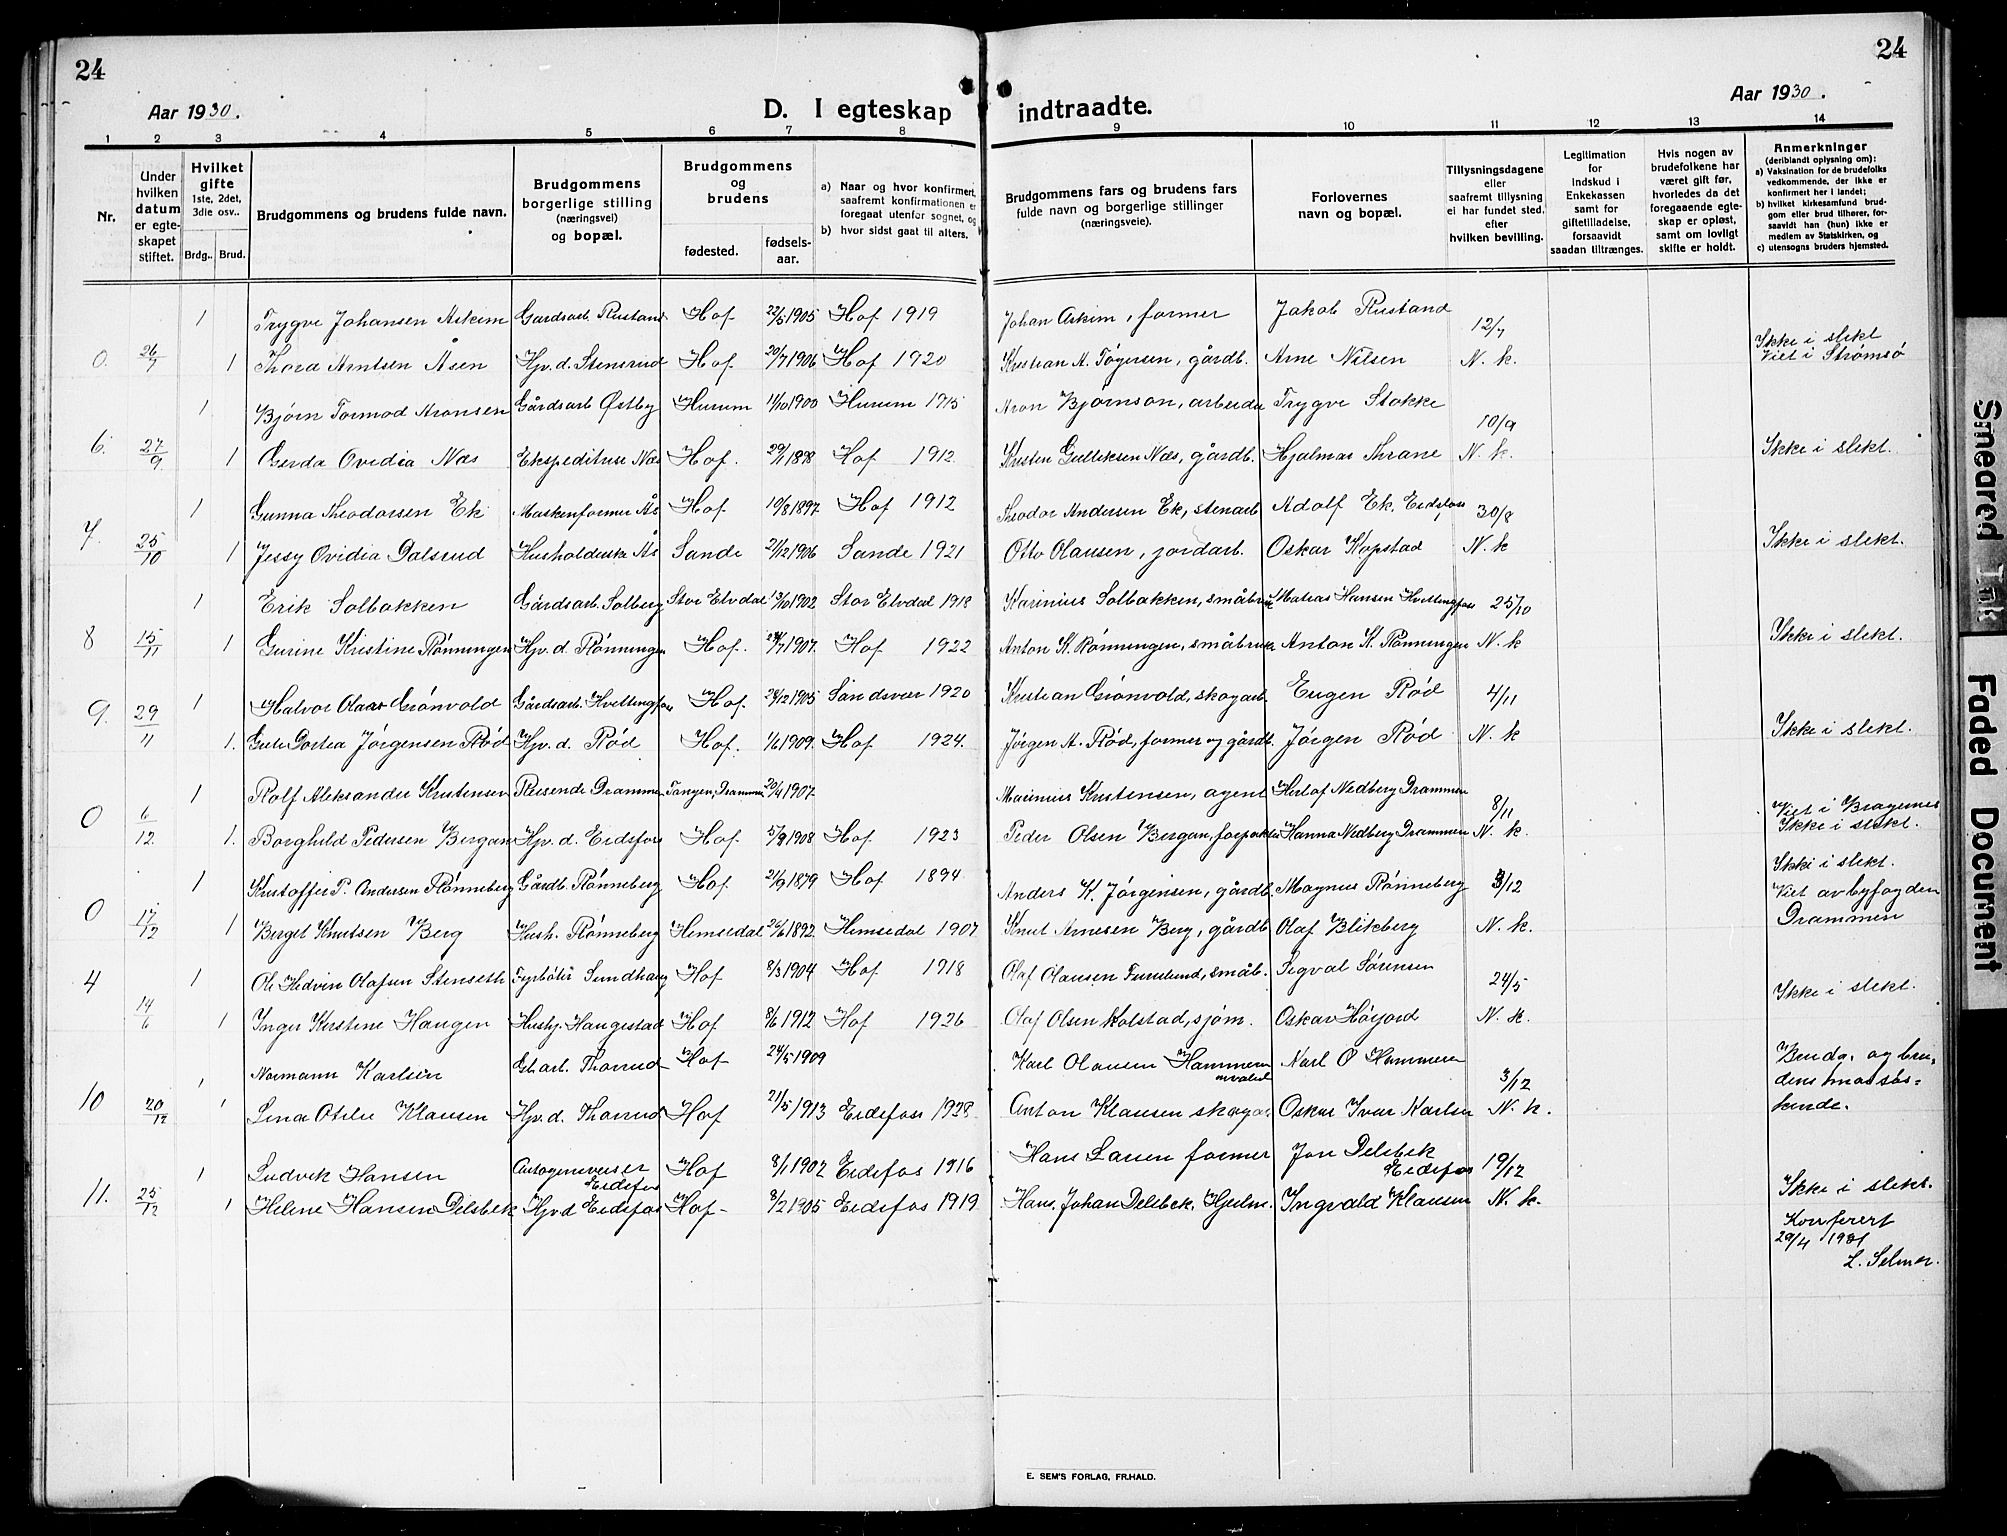 24
24
Aar 1930.
D. I egteskap indtraadte.
Aar 1930.
1 2 3 4 5 6 7 8 9 10 11 12 13 14
Nr.
Under hvilken datum er egteskapet stiftet.
Hvilket gifte 1ste, 2det, 3die osv..
Brdg.. Brud.
Brudgommens og brudens fulde navn.
Brudgommens borgerlige stilling (næringsvei) og bopæl.
Brudgommens og brudens
fødested. fødsels-aar.
a) Naar og hvor konfirmert, saafremt konfirmationen er foregaat utenfor sognet, og
b) hvor sidst gaat til alters.
Brudgommens fars og brudens fars fulde navn og borgerlige stillinger (næringsveie).
Forlovernes navn og bopæl.
Tillysningsdagene eller saafremt tillysning ei har fundet sted, efter hvilken bevilling.
Legitimation for Indskud i Enkekassen samt for giftetilladelse, forsaavidt saadan tiltrænges.
Hvis nogen av brudefolkene har været gift før, hvorledes da det foregaaende egteskap er opløst, samt om lovligt skifte er holdt.
Anmerkninger (deriblandt oplysning om):
a) Vaksination for de brudefolks vedkommende, der ikke er konfirmert her i landet;
b) hvilket kirkesamfund brudgom eller brud tilhører, forsaavidt han (hun) ikke er medlem av Statskirken, og
c) utensogns bruders hjemsted.
1 Trygve Johansen Askim Gardsarb. Rustand Hof 22/5 1905 Hof 1919 Johan Askim, former Jakob Rustand 12/7 Ikke i slekt
0. 26/7 1 Thora Arntsen Åsen Hjv. d. Stensrud Hof 20/7 1906 Hof 1920 Kristian A. Tøgersen, gårdb. Arne Nilsen N. k. Viet i Strømsø
1 Bjørn Tormod Aronsen Gårdsarb Østby Hurum 11/10 1900 Hurum 1915 Aron Bjørnson, arbeider Trygve Stokke 10/9
6. 27/9 1 Gerda Ovidia Næs Ekspeditrise Næs Hof. 29/11 1898 Hof 1912 Kristen Gulliksen Næs, gårdb. Hjalmar Thrane N. k. Ikke i slekt.
1 Gunna Theodorsen Ek Maskenformer Ås Hof 10/8 1897 Hof 1912 Theodor Andersen Ek, stenarb Adolf Ek, Eidsfoss 30/8
7. 25/10 1 Jessy Ovidia Dalsrud Husholderske Ås Sande 21/12 1906 Sande 1921 Otto Olausen, jordarb. Oskar Kopstad N. k Ikke i slekt.
1 Erik Solbakken Gårdsarb. Solberg Stor Elvdal 13/10 1902 Stor Elvdal 1918 Karinius Solbakken, småbruk Matias Hansen Hvittingfoss 25/10
8 15/11 1 Gurine Kristine Rønningen Hjv. d. Rønningen Hof. 24/7 1907. Hof 1922 Anton K. Rønningen, småbruk Anton K. Rønningen N. k Ikke i slekt.
1 Halvor Olaus Grønvold Gårdsarb. Hvittingfoss Hof. 28/12 1905 Sandsvær 1920 Kristian Grønvold, skogarb. Eugen Rød 4/11
9. 29/11 1. Gute Dortea Jørgensen Rød Hjv. d. Rød Hof. 1/6 1909. Hof 1924. Jørgen A. Rød, former og gårdb. Jørgen Rød N. k Ikke i slekt.
1 Rolf Aleksander Kristensen Reisende Drammen Tangen, Drammen 20/4 1907. Marinius Kristensen, agent Herlof Nedberg Drammen 8/11 Viet i Bragernes
0 6/12. 1. Borghild Pedersen Bergan Hjv. d. Eidsfoss Hof. 5/9 1908 Hof 1923 Peder Olsen Bergan, forpakter Hanna Nedberg Drammen N. k. Ikke i slekt.
1 Kristoffer P. Andersen Rønneberg Gårdb. Rønneberg Hof 21/9 1879 Hof 1894 Anders K. Jørgensen, gårdb. Magnus Rønneberg 3/12 Ikke i slekt. Viet av byfogden
0 17/12 1 Berget Knutsen Berg Hush. Rønneberg Hemsedal 26/6 1892. Hemsedal 1907. Knut Arnesen Berg, gårdb Olaf Blikberg N. k. Drammen
4 1 Ole Hedvin Olafsen Stenseth Fyrbøter Sundhaug Hof 8/3 1904 Hof 1918 Olaf Olausen Furulund, småb. Sigval Sørensen 24/5
14/6 1 Inger Kristine Haugen Hushj. Haugestad Hof 8/6 1912 Hof 1926 Olaf Olsen Kolstad, sjøm. Oskar Høyjord N. k. Ikke i slekt.
1 Normann Karlsen Gb. arb. Thorrud Hof 24/5 1909 Karl Olausen Hammeren invalid Karl O Hammeren 3/12 Brudg. og bru-
10 20/12 1 Lina Otilie Klausen Hjv. d. Thorrud Hof 21/5 1913 Eidsfos 1928 Anton Klausen skogar. Oskar Ivar Karlsen N. k. dens mor søs-kende.
1 Ludvik Hansen Autogensveiser Eidsfos Hof 8/1 1902 Eidsfos 1916 Hans Larsen former Jon Delebek Eidsfos 19/12
11. 25/12 1 Helene Hansen Delebek Hjv d Eidsfos Hof 3/2 1905 Eidsfos 1919 Hans. Johan Delebek, Hjulm. Ingvald Klausen N. k. Ikke i slekt.
Konferert
29/4 1931
L. Selmer.
E. SEM'S FORLAG, FR.HALD.
Smeared Ink
Faded Document